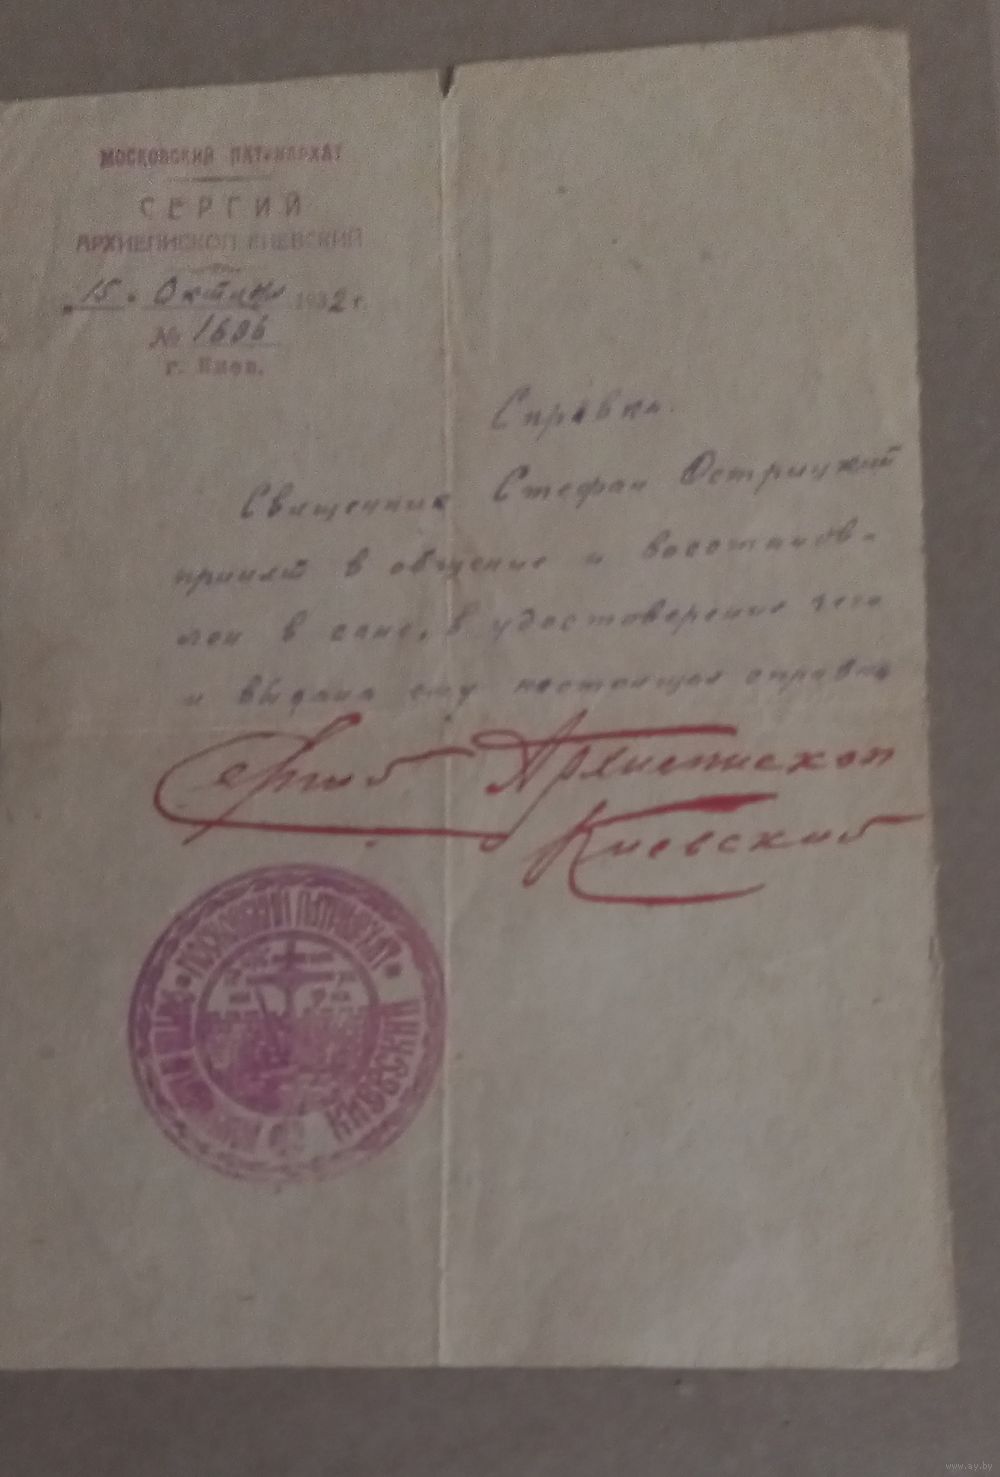 МОСКОВСКИЙ ПАТРИАРХАТ
СЕРГИЙ
АРХИЕПИСКОП КИЕВСКИЙ
„15" Октября 1932 г.
№ 1606
г. Киев.
Справка.
Священник Стефан Острицкий
принят в общение и восстанов-
лен в сане, в удостоверение чего
и выдана ему настоящая справка
Сергий Архиепископ
Киевский
МОСКОВСКИЙ ПАТРИАРХАТ
КИЕВСКИЙ
www.ay.by